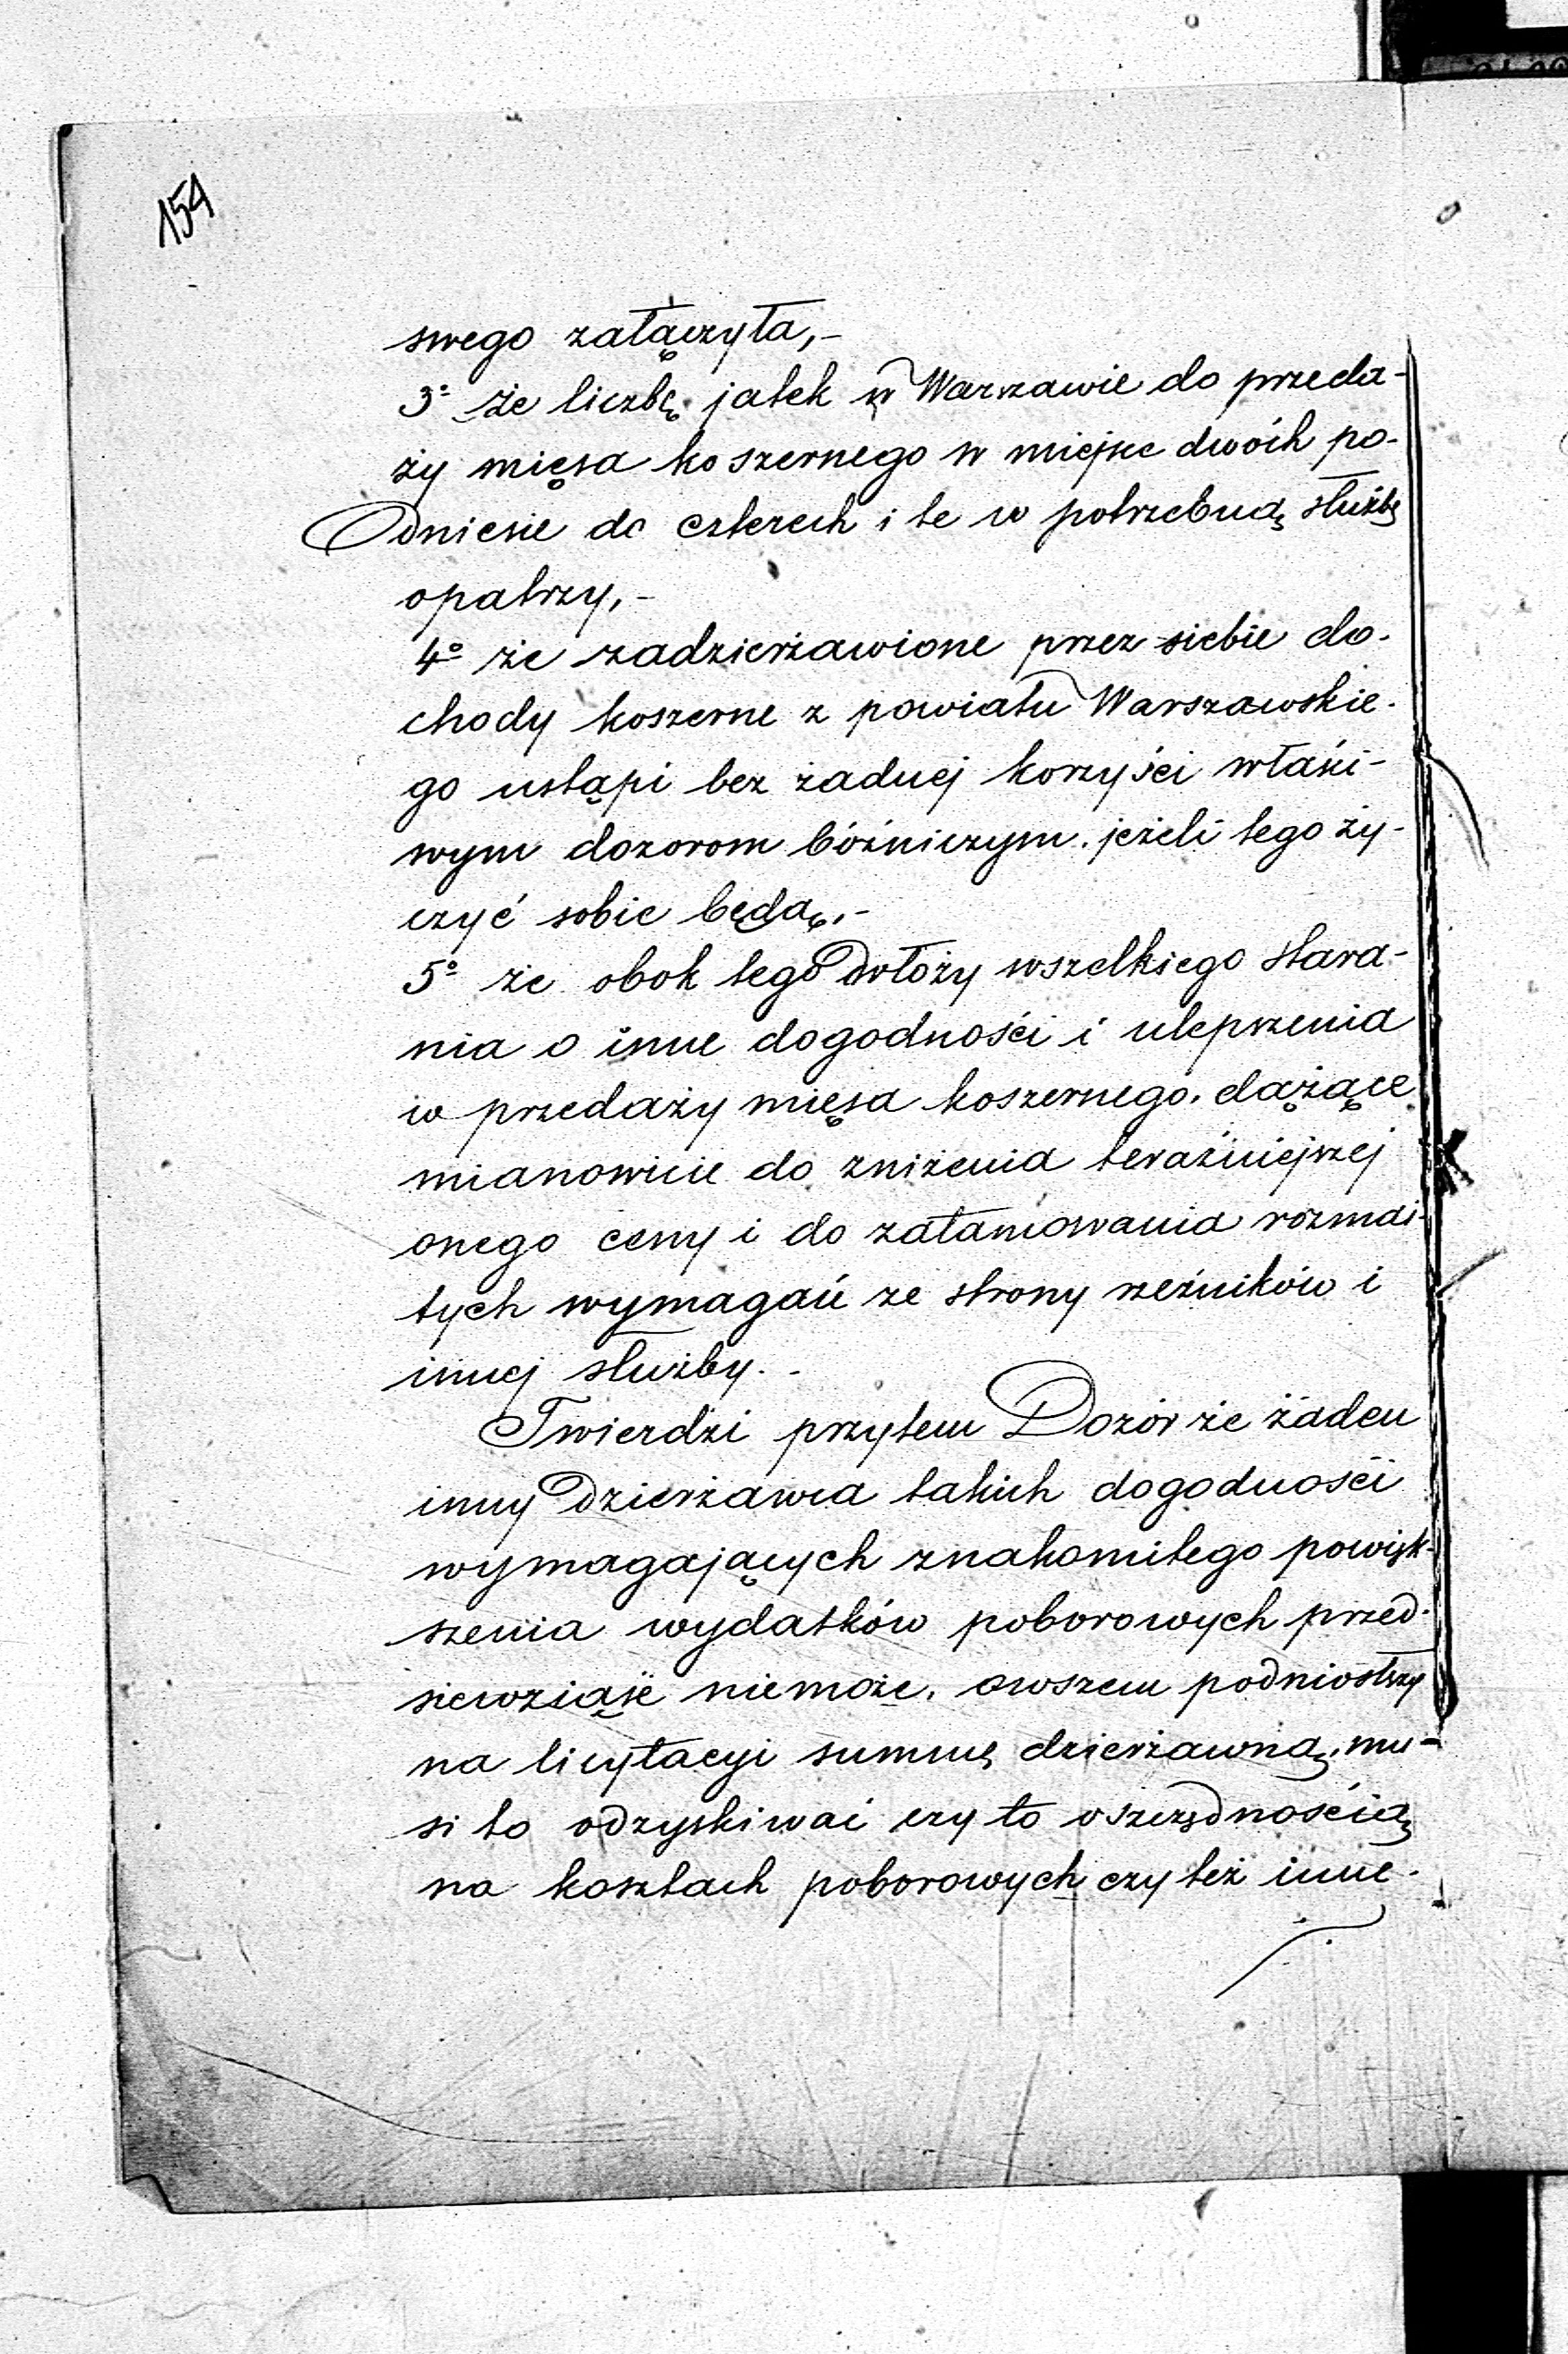 154
swego załączyła,-
3° że liczbę jatek w Warszawie do przeda-
ży mięsa koszernego w miejsc dwóch po-
dniesie do czterech i te w potrzebną służbę
opatrzy,-
4° że zadzierżawione przez siebie do-
chody koszerne z powiatu Warszawskie-
go ustąpi bez żadnej korzyści właści-
wym dozorom bóżniczym. jeżeli tego ży-
czyć sobie będą,-
5° że obok tego dołoży wszelkiego stara-
nia o inne dogodności i ulepszenia
w przedaży mięsa koszernego, dążące
mianowicie do zniżenia teraźniejszej
onego ceny i do zatamowania rozmai-
tych wymagań ze strony rzeźników i
innej służby.-
Twierdzi przytem Dozór że żaden
inny dzierżawca takich dogodności
wymagających znakomitego powięk-
szenia wydatków poborowych przed-
siewziąść niemoże, owszem podniosłszy
na licytacyi summę dzierżawną, mu-
si to odzyskiwać czy to oszczędnością
na kosztach poborowych czy też inne-